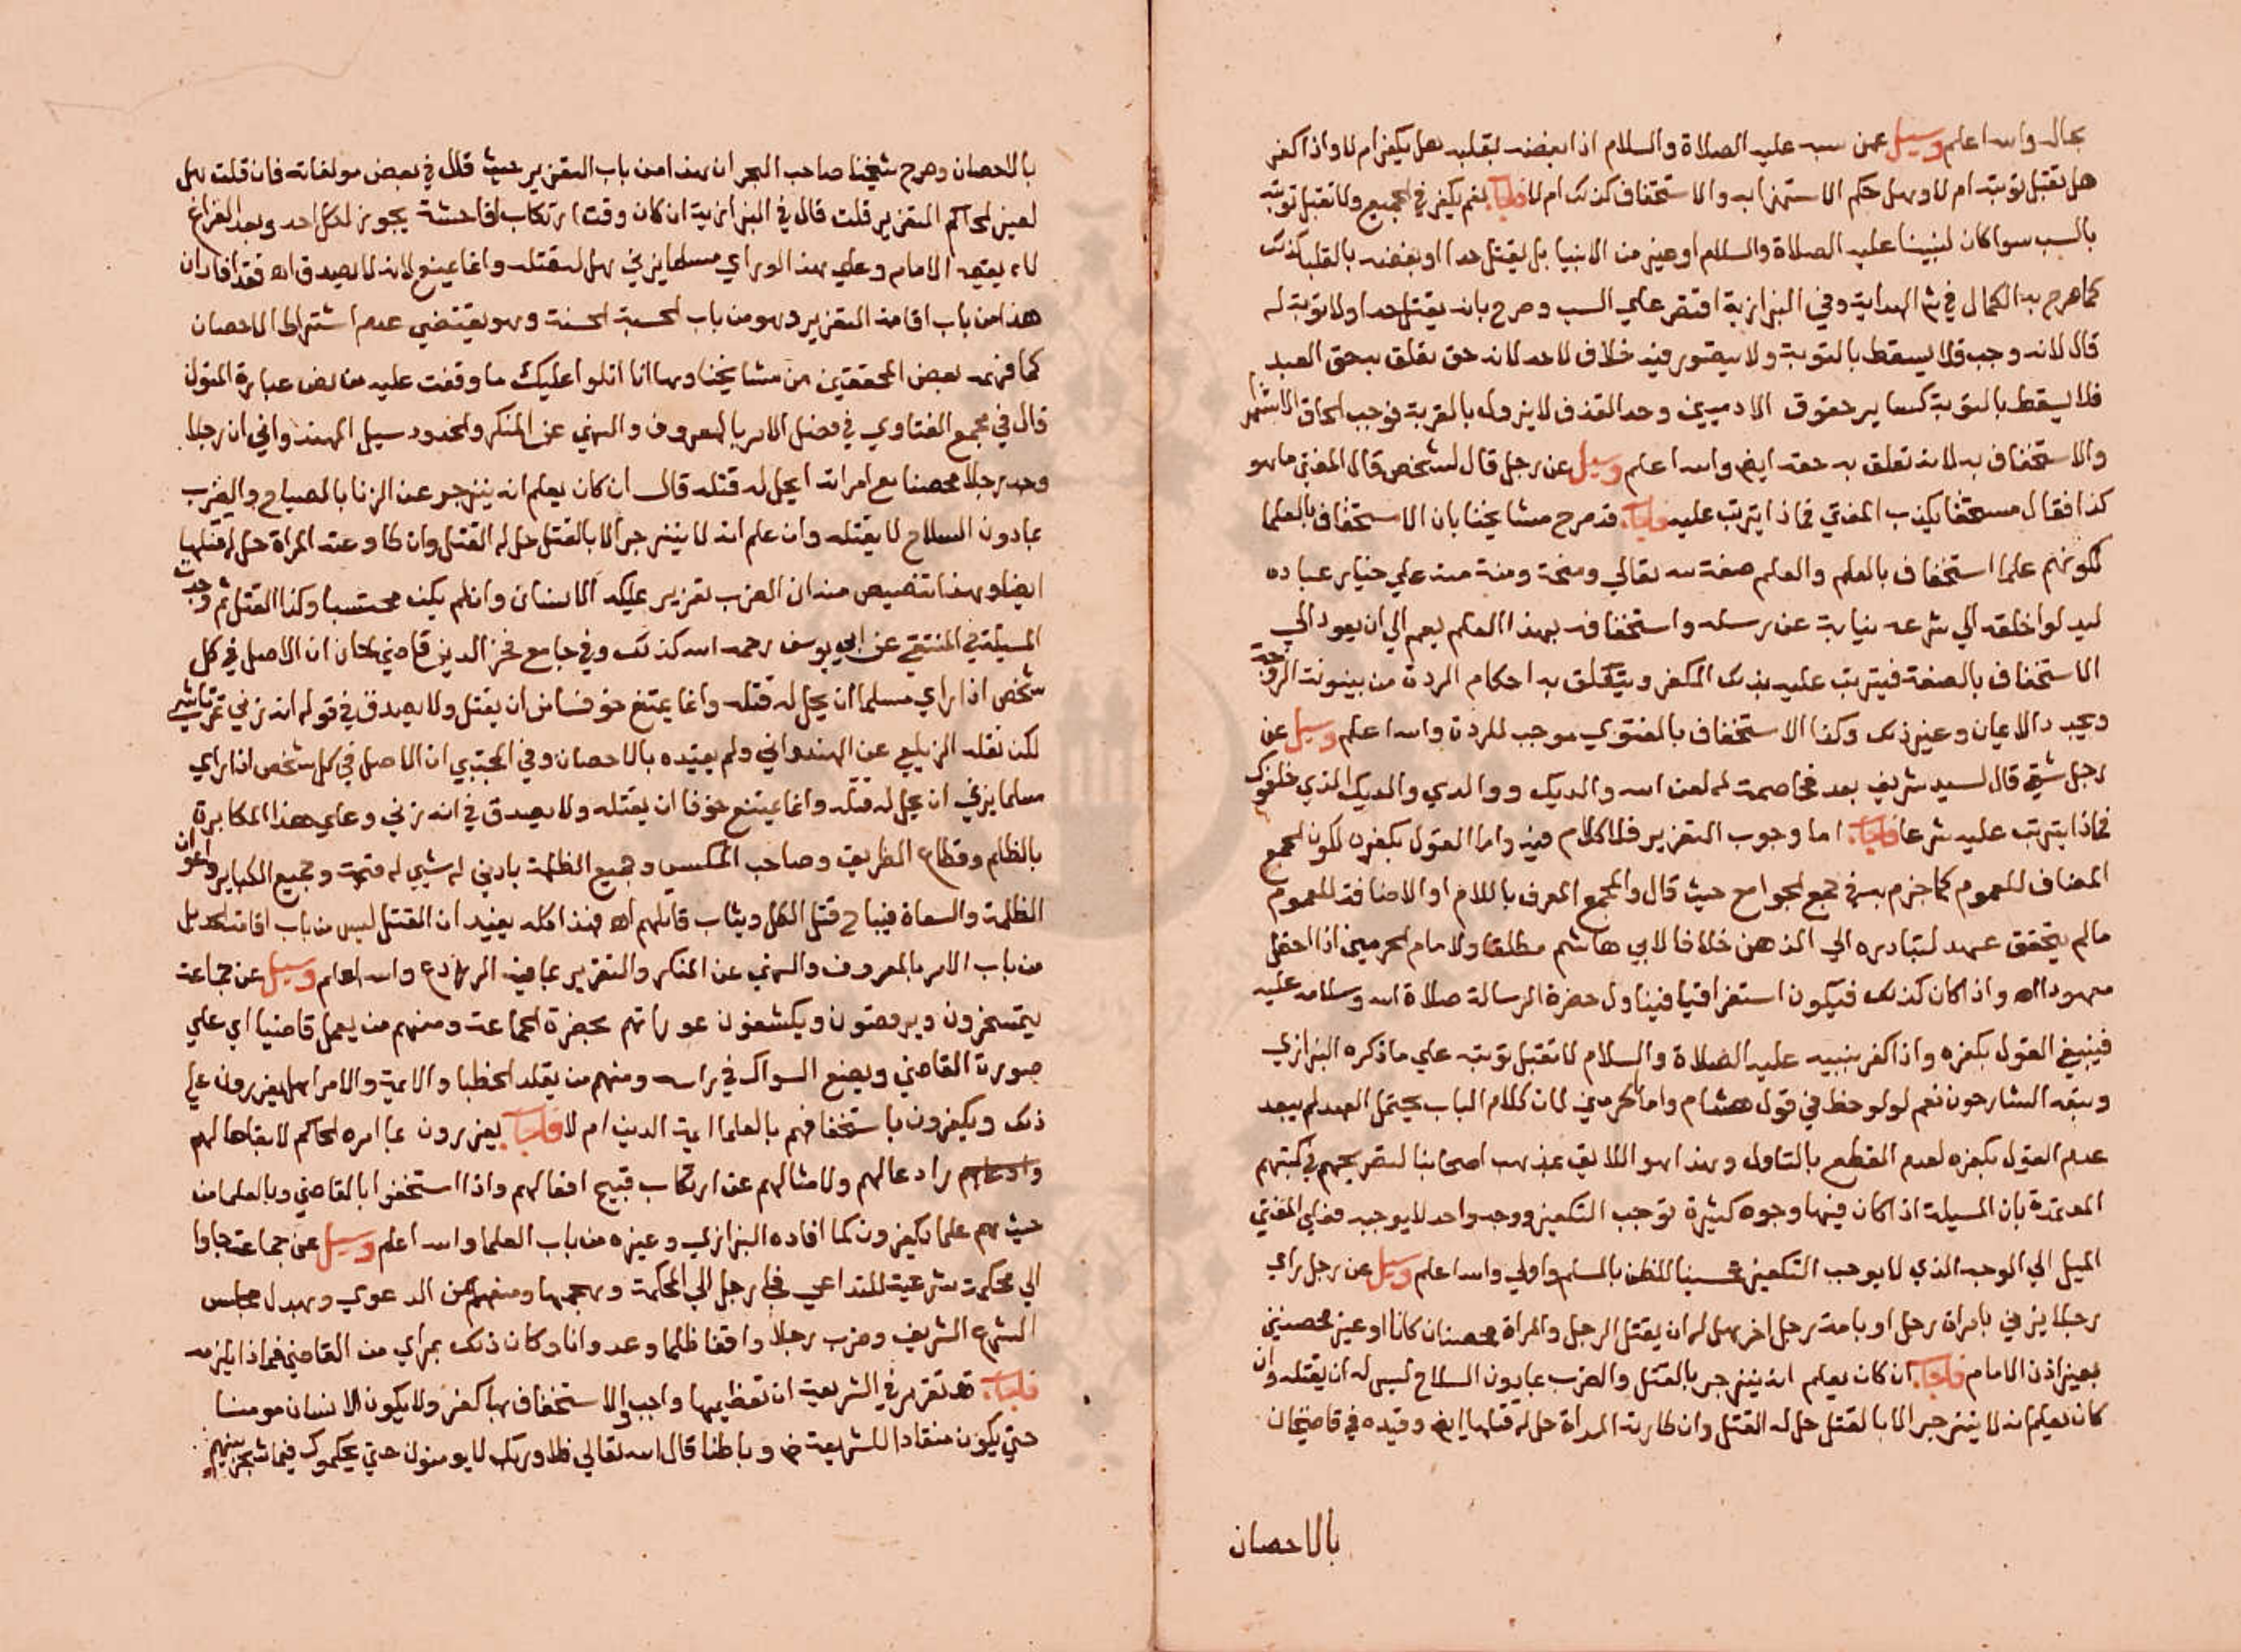 بحال والله اعلم وسيل عمن سب عليه الصلاة والسلام اذا ابغضه بقلبه هل يكفر ام لا واذا كفر
هل تقبل توبته ام لا وهل حكم الاستهزا به والاستخفاف كذلك ام لا فاجاب نعم يكفر في الجميع ولا تقبل توبته
بالسب سوا كان لنبينا عليه الصلاة والسلام او غيره من الانبيا بل يقتل حدا او بغضه بالقلب كذلك
كما صرح به الكمال في ش الهداية وفي البزازية اقتصر علي السب وصرح بانه يقتل حدا ولا توبة له
قال لانه وجب فلا يسقط بالتوبة ولا يتصور فيه خلاف لاحد لانه حق تعلق بحق العبد
فلا يسقط بالتوبة كساير حقوق الادميين وحد القذف لا يزول بالتوبة فوجب الحاق الاستهزا
والاستخفاف به لانه تعلق به حقه ايض والله اعلم وسيل عن رجل قال لشخص قال المفتي ما هو
كذا فقال مستخفا يكذب المفتي فماذا يترتب عليه فاجاب قد صرح مشايخنا بان الاستخفاف بالعلما
لكونهم علما استخفاف بالعلم والعلم صفة لله تعالي ومنحة ومنة منه علي خيار عباده
ليدلوا خلقه الي شرعه نيابة عن رسله واستخفافه بهذا العلم يعم الي ان يعود الي
الاستخفاف بالصفة فيترتب عليه بذلك الكفر ويتعلق به احكام الردة من بينونة الزوجة
وتجديد الايمان وغير ذلك وكذا الاستخفاف بالفتوي موجب للردة والله اعلم وسيل عن
رجل شقي قال لسيد شريف بعد مخاصمة له لعن الله والديك ووالدي والديك الذي خلفوك
فماذا يترتب عليه شرعا فاجاب اما وجوب التعزير فلا كلام فيه واما القول بكفره لكون الجمع
المضاف للعموم كما جزم به في جمع الجوامع حيث قال والجمع المعرف باللام او الاضافة للعموم
مالم يتحقق عهد لتبادره الي الذهن خلافا لابي هاشم مطلقا ولامام الحرمين اذا احتمل
معهودا اه واذا كان كذلك فيكون استغراقيا فيتناول حضرة الرسالة صلاة الله وسلامه عليه
فينبغي القول بكفره واذا كفر بنبيه عليه الصلاة والسلام لا تقبل توبته علي ما ذكره البزازي
وتبعه الشارحون نعم لو لوحظ في قول هشام وامام الحرمين لان كلام الباب يحتمل العهد لم يبعد
عدم القول بكفره لعدم القطع بالتناول وهذا هو اللايق بمذهب اصحابنا لتصريحهم في كتبهم
المعتمدة بان المسيلة اذا كان فيها وجوه كثيرة توجب التكفير ووجه واحد لا يوجبه فعلي المفتي
الميل الي الوجه الذي لا يوجب التكفير تحسينا للظن بالمسلم واولي والله اعلم وسيل عن رجل راي
رجلا يزني بامراة رجل او بامة رجل اخر هل له ان يقتل الرجل والمراة محصنان كانا او غير محصنين
بغير اذن الامام فاجاب ان كان يعلم انه ينزجر بالقتل والضرب بما دون السلاح ليس له ان يقتله وان
كان يعلم انه لا ينزجر الا بالقتل حل له القتل وان طاوعته المراة حل له قتلها ايض وقيده في قاضيخان
بالاحصان
بالاحصان وصرح شيخنا صاحب البحر ان هذا من باب التعزير حيث قال في بعض مولفاته فان قلت هل
لغير الحاكم التعزير قلت قال في البزازية ان كان وقت ارتكاب الفاحشة يجوز لكل احد وبعد الفراغ
لا يقيمه الا الامام وعلي هذا لو راي مسلما يزني يحل له قتله وانما يمتنع لانه لا يصدق اه فقد افاد ان
هذا من باب اقامة التعزير وهو من باب الحسبة الحسنة وهو يقتضي عدم اشتراط الاحصان
كما فهمه بعض المحققين من مشايخنا وها انا اتلوا عليك ما وقفت عليه من نص عبارة القول
قال في مجمع الفتاوي في فصل الامر بالمعروف والنهي عن المنكر والحدود سيل الهندواني ان رجلا
وجد رجلا محصنا مع امراته ايحل له قتله قال ان كان يعلم انه ينزجر عن الزنا بالصياح والضرب
بما دون السلاح لا يقتله وان علم انه لا ينزجر الا بالقتل حل له القتل وان طاوعته المراة حل له قتلها
ايضا وهذا تنصيص منه ان الضرب تعزير عليكه الانسان وان لم يكن محتسبا وكذا القتل ثم وجدت
المسيلة في المنتقي عن ابي يوسف رحمه الله كذلك وفي جامع فخر الدين قاضي خان ان الاصل في كل
شخص اذا راي مسلما ان يحل له قتله وانما يمتنع خوفا من ان يقتل ولا يصدق في قوله انه زني
لكن نقله الزيلعي عن الهندواني ولم يقيده بالاحصان وفي المجتبي ان الاصل في كل شخص اذا راي
مسلما يزني ان يحل له قتله وانما يمتنع خوفا ان يقتله ولا يصدق في انه زني وعلي هذا المكابرة
بالظلم وقطاع الطريق وصاحب المكس وجميع الظلمة بادني له شيي له قيمة وجميع الكباير واعوان
الظلمة والسعاة فيباح قتل الكل ويثاب قاتلهم اه فهذا كله يفيد ان القتل ليس من باب اقامة الحد بل
من باب الامر بالمعروف والنهي عن المنكر والتعزير بما فيه الارتداع والله اعلم وسيل عن جماعة
يتمسخرون ويرقصون ويكشفون عوراتهم بحضرة الجماعة ومنهم من يعمل قاضيا اي علي
صورة القاضي ويضع السواك في راسه ومنهم من يقلد الخطبا والايمة والامرا هل يعزرون علي
ذلك ويكفرون باستخفافهم بالعلما ايمة الدين ام لا فاجاب يعزرون بما امره الحاكم لابقاها لهم
رادعا لهم ولامثالهم عن ارتكاب قبيح افعالهم واذا استخفوا بالقاضي وبالعلما من
حيث هم علما يكفرون كما افاده البزازي وغيره من باب العلما والله اعلم وسيل عن جماعة جاوا
الي محكمة شرعية للتداعي فجا رجل الي المحكمة وهجمها ومنعهم من الدعوي وبهدل مجلس
الشرع الشريف وضرب رجلا واقفا ظلما وعدوانا وكان ذلك بمراي من القاضي فماذا يلزمه
فاجاب قد تقرر في الشريعة ان تعظيمها واجب والاستخفاف بها كفر ولا يكون الانسان مومنا
حتي يكون منقادا للشريعة ظ وباطنا قال الله تعالي فلا وربك لا يومنون حتي يحكموك فيما شجر بينهم